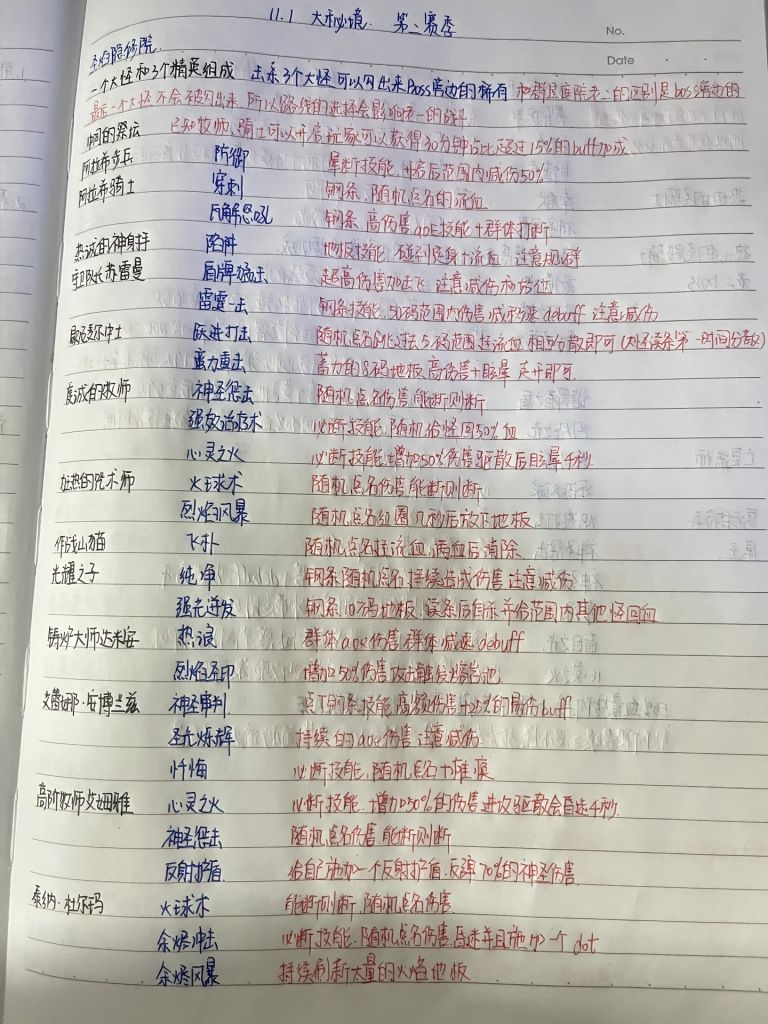 11.1 大秘境. 第二赛季
No.
Date
圣焰隐修院
一个大怪和3个精英组成 击杀3个大怪可以勾出来Boss旁边的稀有 和群居庭院老一的区别是boss旁边的
最后一个大怪不会被勾出来 所以路线的选择会影响老一的
中间的祭坛 已知牧师、骑士可以开启玩家可以获得30分钟占比超过15%的buff加成
阿拉希步兵 防御 晕断技能,开启后范围内减伤50%
阿拉希骑士 穿刺 钢条,随机点名的流血
瓦解怒吼 钢条 高伤害aoE技能+群体打断
热诚的神射手 陷阱 地板技能 碰到定身+流血 注意规群
守卫队长苏雷曼 盾牌猛击 超高伤害加击飞 注意减伤和站位
雷霆一击 钢条技能,50码范围内伤害减移速debuff 注意减伤
歇尼麦尔中士 跃进打击 随机点名跳过去5码范围挂流血 相互分散即可(大怪读条第一时间分散)
蛮力重击 蓄力的8码地板 高伤害+眩晕 走开即可
虔诚的牧师 神圣惩击 随机点名伤害,能断则断
强效治疗术 必断技能,随机给怪回50%血
心灵之火 必断技能,增加50%伤害驱散后眩晕4秒
狂热的咒术师 火球术 随机点名伤害,能断则断
烈焰风暴 随机点名红圈几秒后放下地板
作战山猫 飞扑 随机点名挂流血,满血后清除
光耀之子 纯净 钢条随机点名,持续造成伤害注意减伤
强光迸发 钢条 10码地板,读条后自杀并给范围内其他怪回血
铸炉大师达米安 热浪 群体aoe伤害群体减速debuff
烈焰圣印 增加50%伤害攻击触发熔岩池
艾蕾娜·安博兰兹 神圣审判 点T钢条技能,高额伤害+25%的易伤buff
圣光烁辉 持续的aoe伤害注意减伤
忏悔 必断技能,随机点名+瘫痪
高阶牧师艾姆雅 心灵之火 必断技能,增加50%的伤害进攻驱散会自迷4秒.
神圣惩击 随机点名伤害 能断则断
反射护盾 给自己施加一个反射护盾,反弹70%的神圣伤害
泰纳·杜尔玛 火球术 能断则断,随机点名伤害
余烬冲击 必断技能,随机点名伤害,高速并且施加一个dot
余烬风暴 持续刷新大量的火焰地板